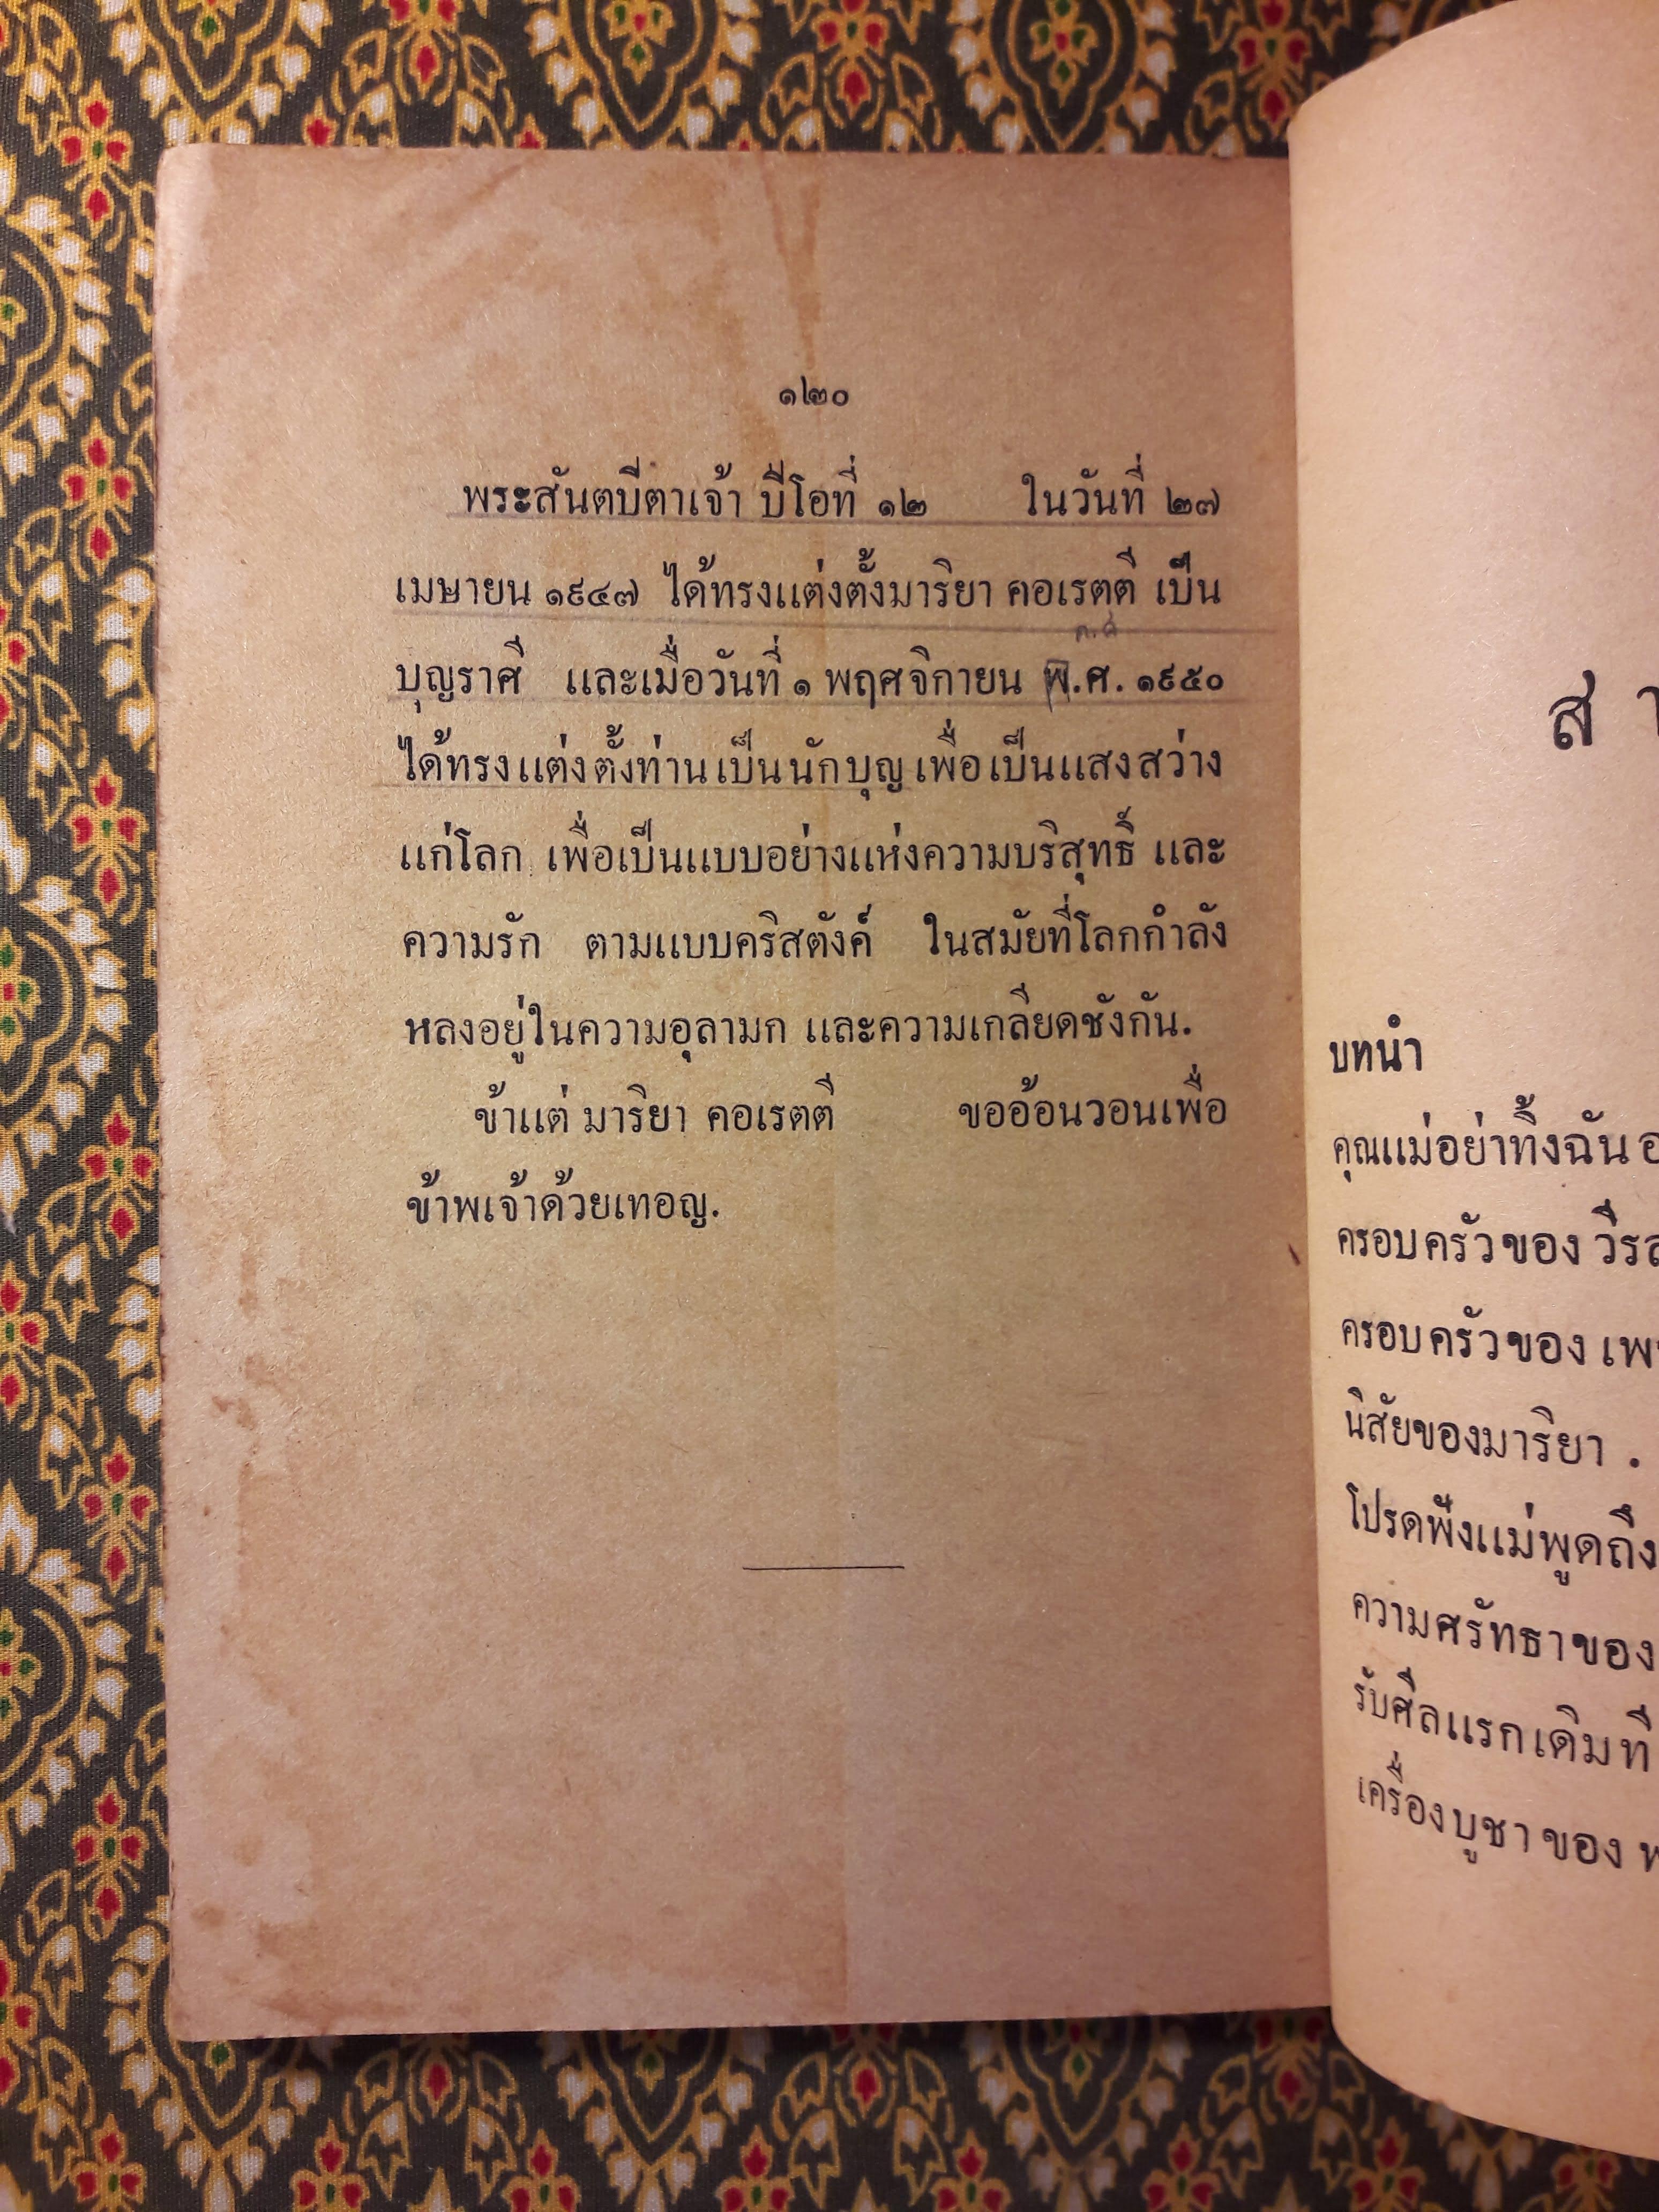 ๑๒๐
พระสันตบีตาเจ้า บีโอที่ ๑๒ ในวันที่ ๒๗
เมษายน ๑๙๔๗ ได้ทรงแต่งตั้งมาริยา คอเรตตี เป็น
ค.ศ
บุญราศี และเมื่อวันที่ ๑ พฤศจิกายน พ.ศ. ๑๙๕๐
ได้ทรงแต่งตั้งท่านเป็นนักบุญเพื่อเป็นแสงสว่าง
แก่โลก เพื่อเป็นแบบอย่างแห่งความบริสุทธิ์ และ
ความรัก ตามแบบคริสตังค์ ในสมัยที่โลกกำลัง
หลงอยู่ในความอุลามก และความเกลียดชังกัน.
ข้าแต่ มาริยา คอเรตตี ขออ้อนวอนเพื่อ
ข้าพเจ้าด้วยเทอญ.
บทนำ
คุณแม่อย่าทิ้งฉัน
ครอบครัวของ
ครอบครัวของ
นิสัยของมาริยา .
โปรดฟังแม่พูดถึง
ความศรัทธาของ
รับศีลแรกเดิมที
เครื่องบูชาของ